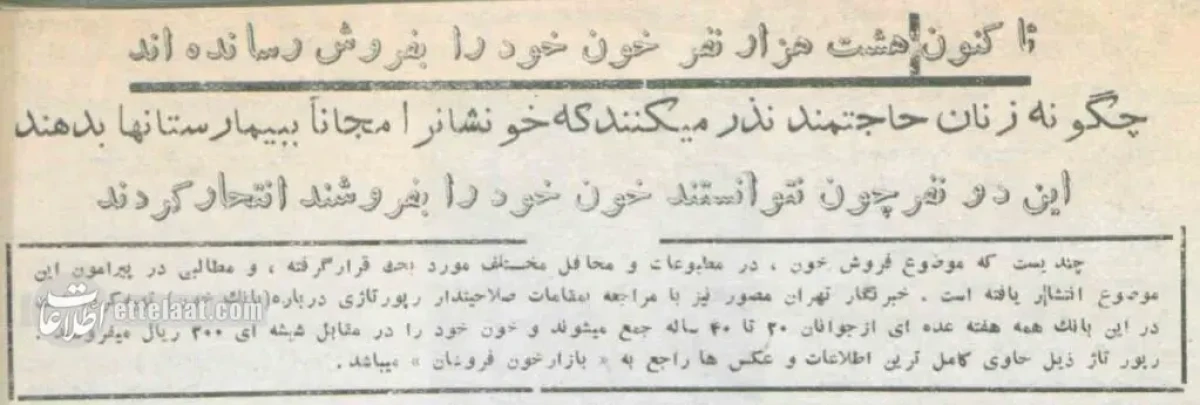 تا کنون هشت هزار نفر خون خود را بفروش رسانده اند
چگونه زنان حاجتمند نذر میکنند که خونشانرا مجاناً ببیمارستانها بدهند
این دو نفر چون نتوانستند خون خود را بفروشند انتحار کردند
چندیست که موضوع فروش خون ، در مطبوعات و محافل مختلف مورد بحث قرار گرفته ، و مطالبی در پیرامون این
موضوع انتشار یافته است . خبرنگار تهران مصور نیز با مراجعه بمقامات صلاحیتدار رپورتاژی درباره (بانك
در این بانك همه هفته عده ای از جوانان ۲۰ تا ۴۰ ساله جمع میشوند و خون خود را در مقابل شیشه ای ۳۰۰ ریال میفروشند .
رپورتاژ ذیل حاوی کامل ترین اطلاعات و عکس ها راجع به « بازار خون فروشان » میباشد .
اطلاعات
ettelaat.com